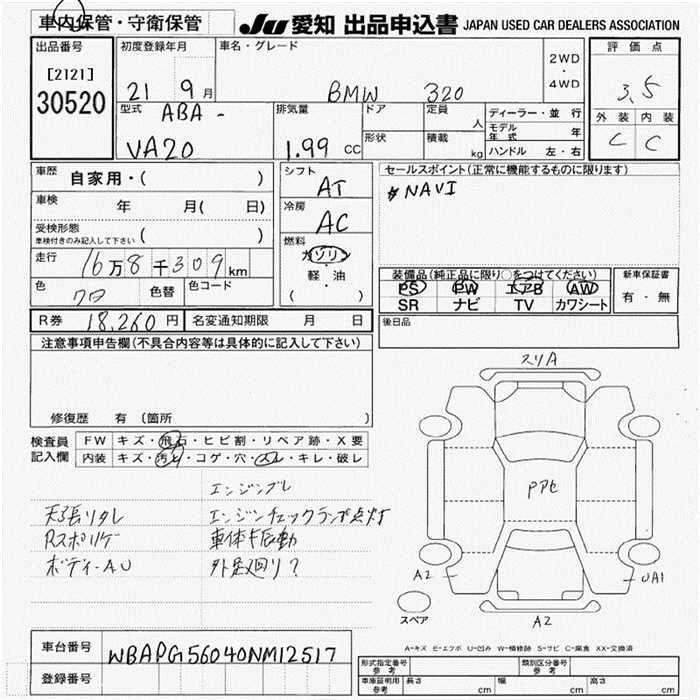 車内保管・守衛保管 JU 愛知 出品申込書 JAPAN USED CAR DEALERS ASSOCIATION
出品番号 初度登録年月 車名・グレード 2WD・4WD 評価点
[2121]
30520 21 9月 BMW 320 3.5
型式 ABA- 排気量 ドア 定員 人 ディーラー・並行 外装 内装
VA20 1.99 CC 形状 積載 kg モデル年式 年 C C
ハンドル 左・右
車歴 自家用・( ) シフト AT セールスポイント(正常に機能するものに限ります)
車検 年 月( 日) 冷房 AC NAVI
受検形態 車検付きのみ記入して下さい ( ) 燃料 ガソリン
走行 16万8千309km 軽・油 装備品(純正品に限り○をつけてください) 新車保証書
色 クロ 色替 色コード ( ) PS PW エアB AW 有・無
SR ナビ TV カワシート
R券 18,260円 名変通知期限 月 日 後日品
注意事項申告欄(不具合内容等は具体的に記入して下さい)
スリA
修復歴 有 (箇所
検査員 FW キズ・飛石・ヒビ割・リペア跡・X要
記入欄 内装 キズ・汚レ・コゲ・穴・スレ・キレ・破レ
エンジンブレ PPセ
天張リタレ エンジンチェックランプ点灯
Rスポリゲ 車体キ振動
ボディーAU 外足廻リ?
A2 UA1
スペア A2
A-キズ E-エクボ U-凹み W-補修跡 S-サビ C-腐食 XX-交換済
車台番号 WBAPG56040NM12517
登録番号
形式指定番号 参考 類別区分番号 参考
車庫証明用 参考 長さ cm 幅 cm 高さ cm